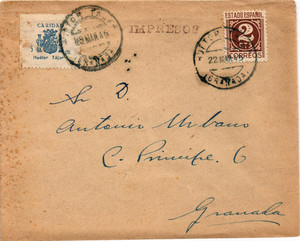 CARIDAD
Huétor Tájar
IMPRESOS
ESTADO ESPAÑOL
2
CTS
CORREOS
22 MAR 45
GRANADA
Sr D.
Antonio Urbano
C. Principe. 6
Granada